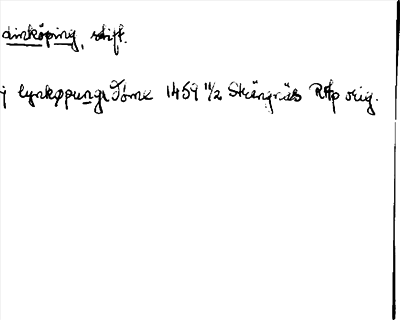 Linköping, stift.
j lynkøpungs Döme 1459 11/2 Strängnäs RAp orig.